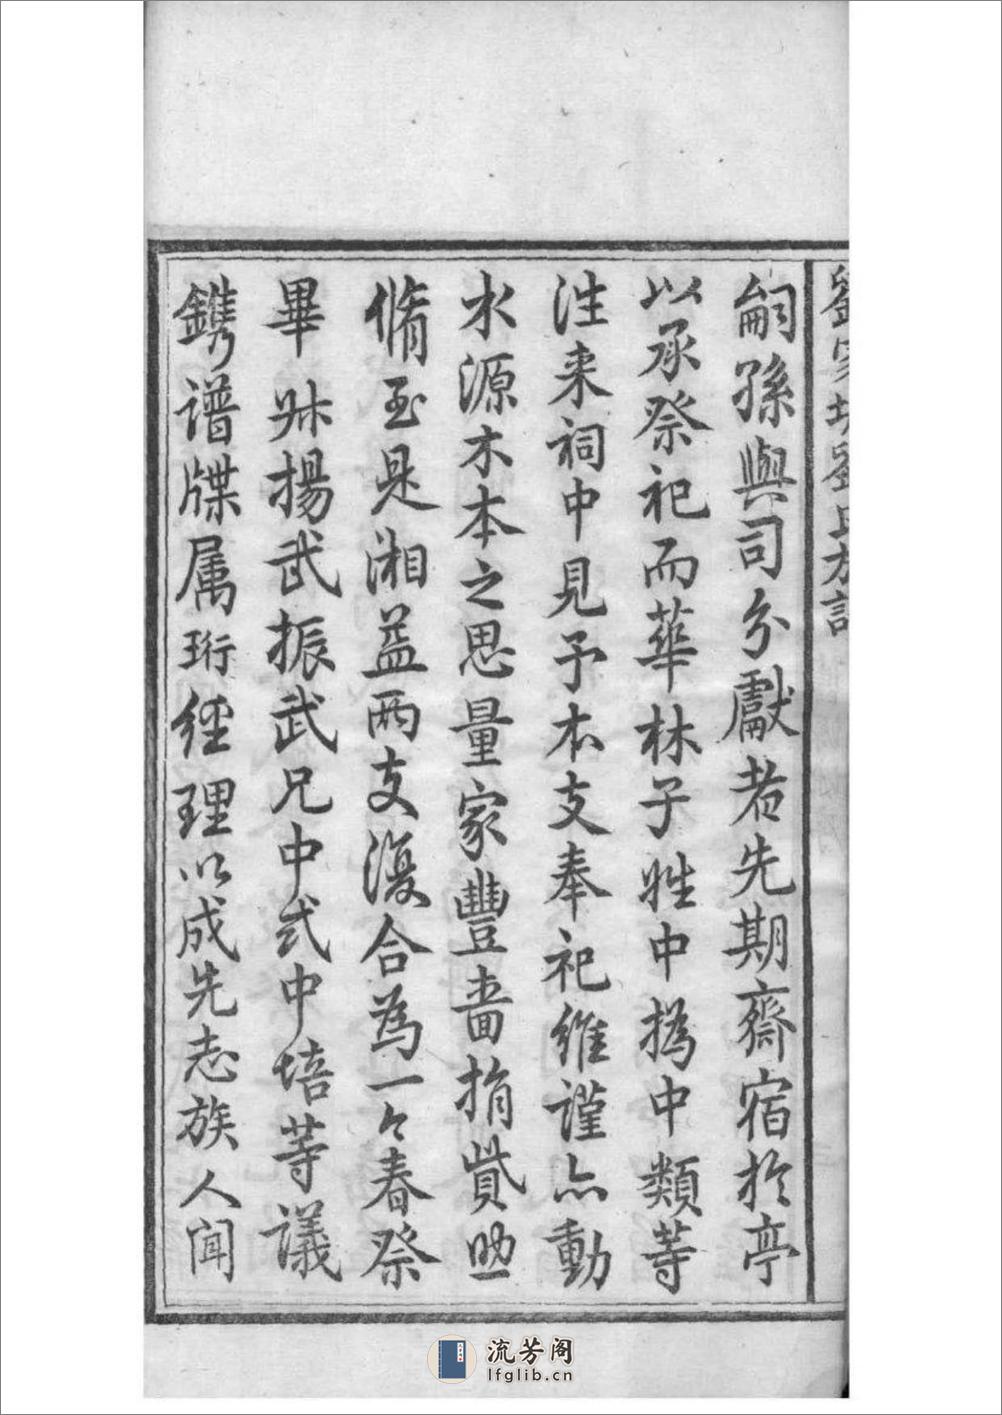 嗣孫與司分獻者先期齋宿於亭
以承祭祀而華林子姓中撝中類等
往来祠中見予本支奉祀維謹亦動
水源木本之思量家豐嗇捐貲助
脩至是湘益兩支復合為一々春祭
畢 牀揚武振武兄中弍中培等議
鐫谱牒属珩經理以成先志族人闻
劉氏
流芳阁
lfglib.cn